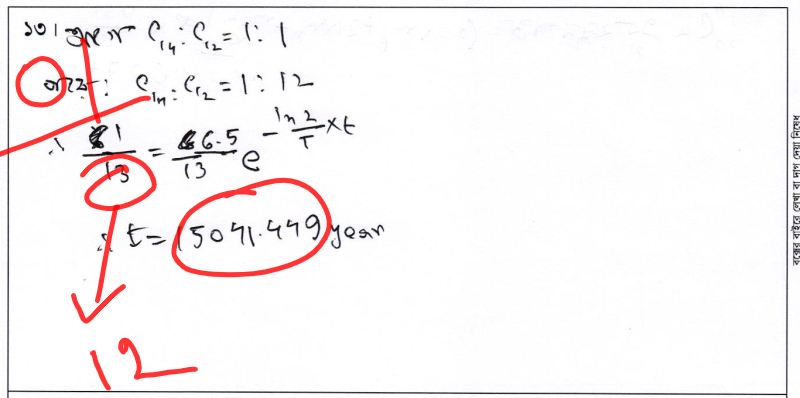 ১৩। প্রথমে C₁₄ : C₁₂ = 1 : 1
পরে : C₁₄ : C₁₂ = 1 : 12
∴ 1/13 = 6.5/13 e^(-ln2/T × t)
∴ t = 15041.449 year
12
বক্সের বাইরে লেখা বা দাগ দেয়া নিষেধ